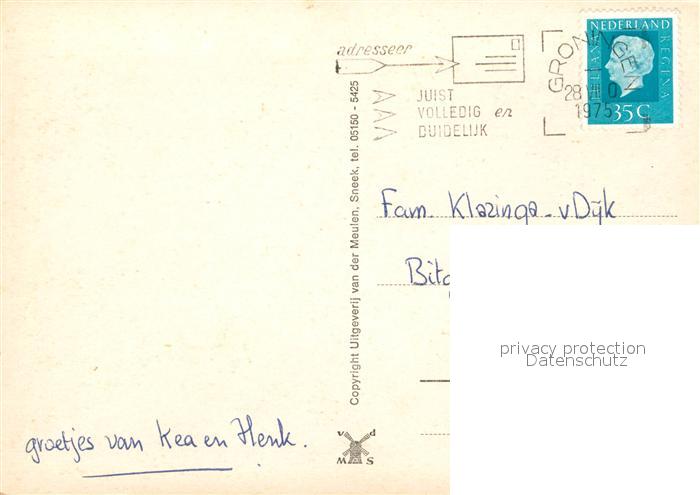 adresseer
JUIST
VOLLEDIG en
DUIDELIJK
GRONINGEN
1975
NEDERLAND
JULIANA REGINA
35 C
Copyright Uitgeverij van der Meulen, Sneek, tel. 05150 - 5425
Fam. Klazinga - v Dijk
privacy protection
Datenschutz
groetjes van Kea en Henk.
v d
W M S